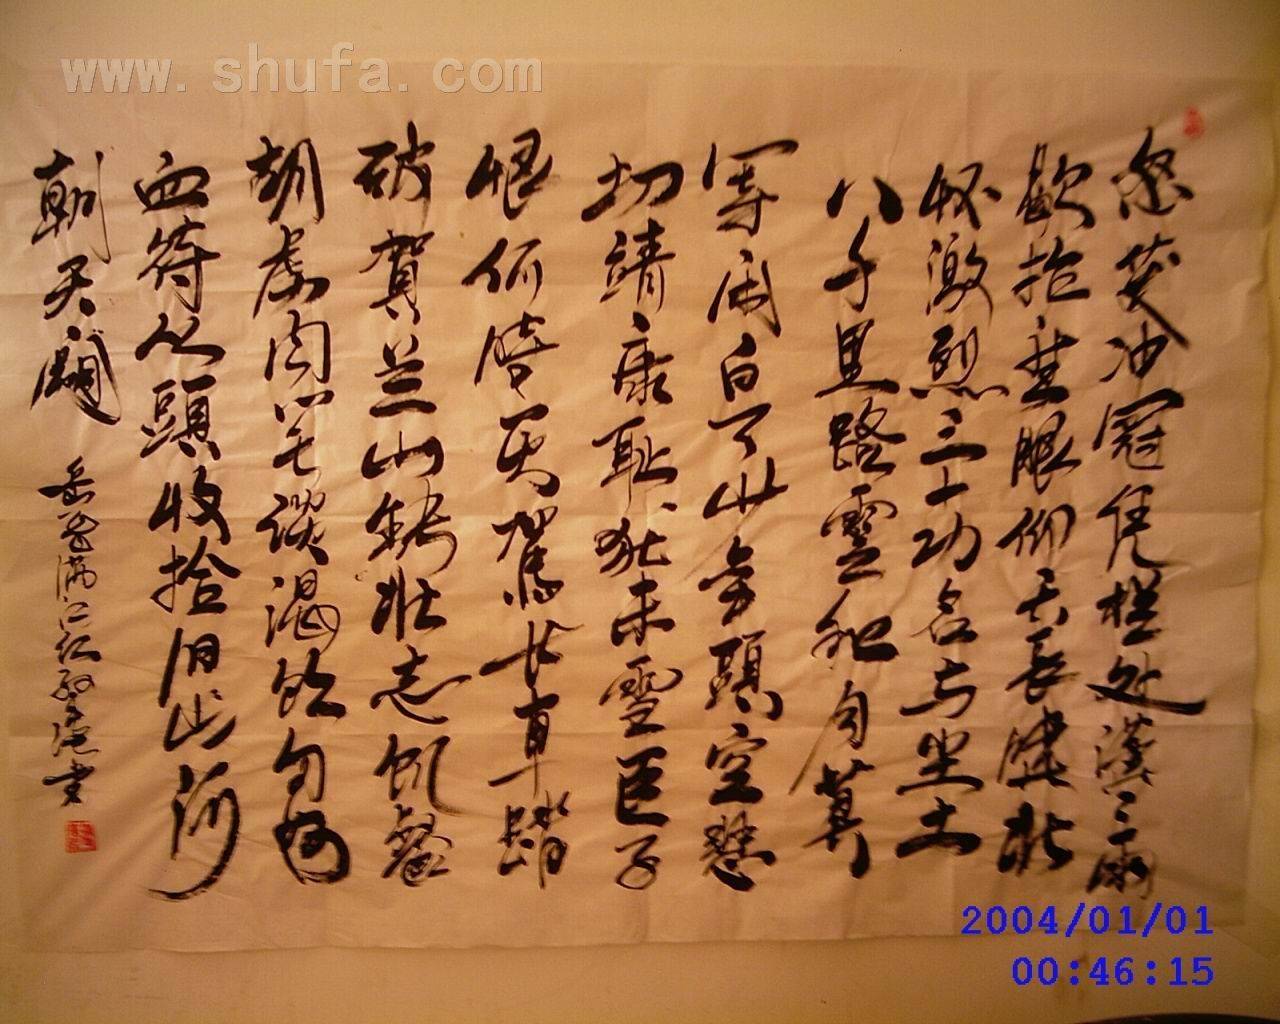 怒发冲冠凭栏处潇々雨
歇抬望眼仰天長啸壮
怀激烈三十功名与尘土
八千里路雲和月莫
等闲白了少年頭空悲
切靖康耻犹未雪臣子
恨何時灭駕长車踏
破賀兰山缺壮志饥餐
胡虏肉笑谈渴饮匈奴
血待从頭收拾旧山河
朝天阙
岳飞满江红 书
www.shufa.com
2004/01/01
00:46:15